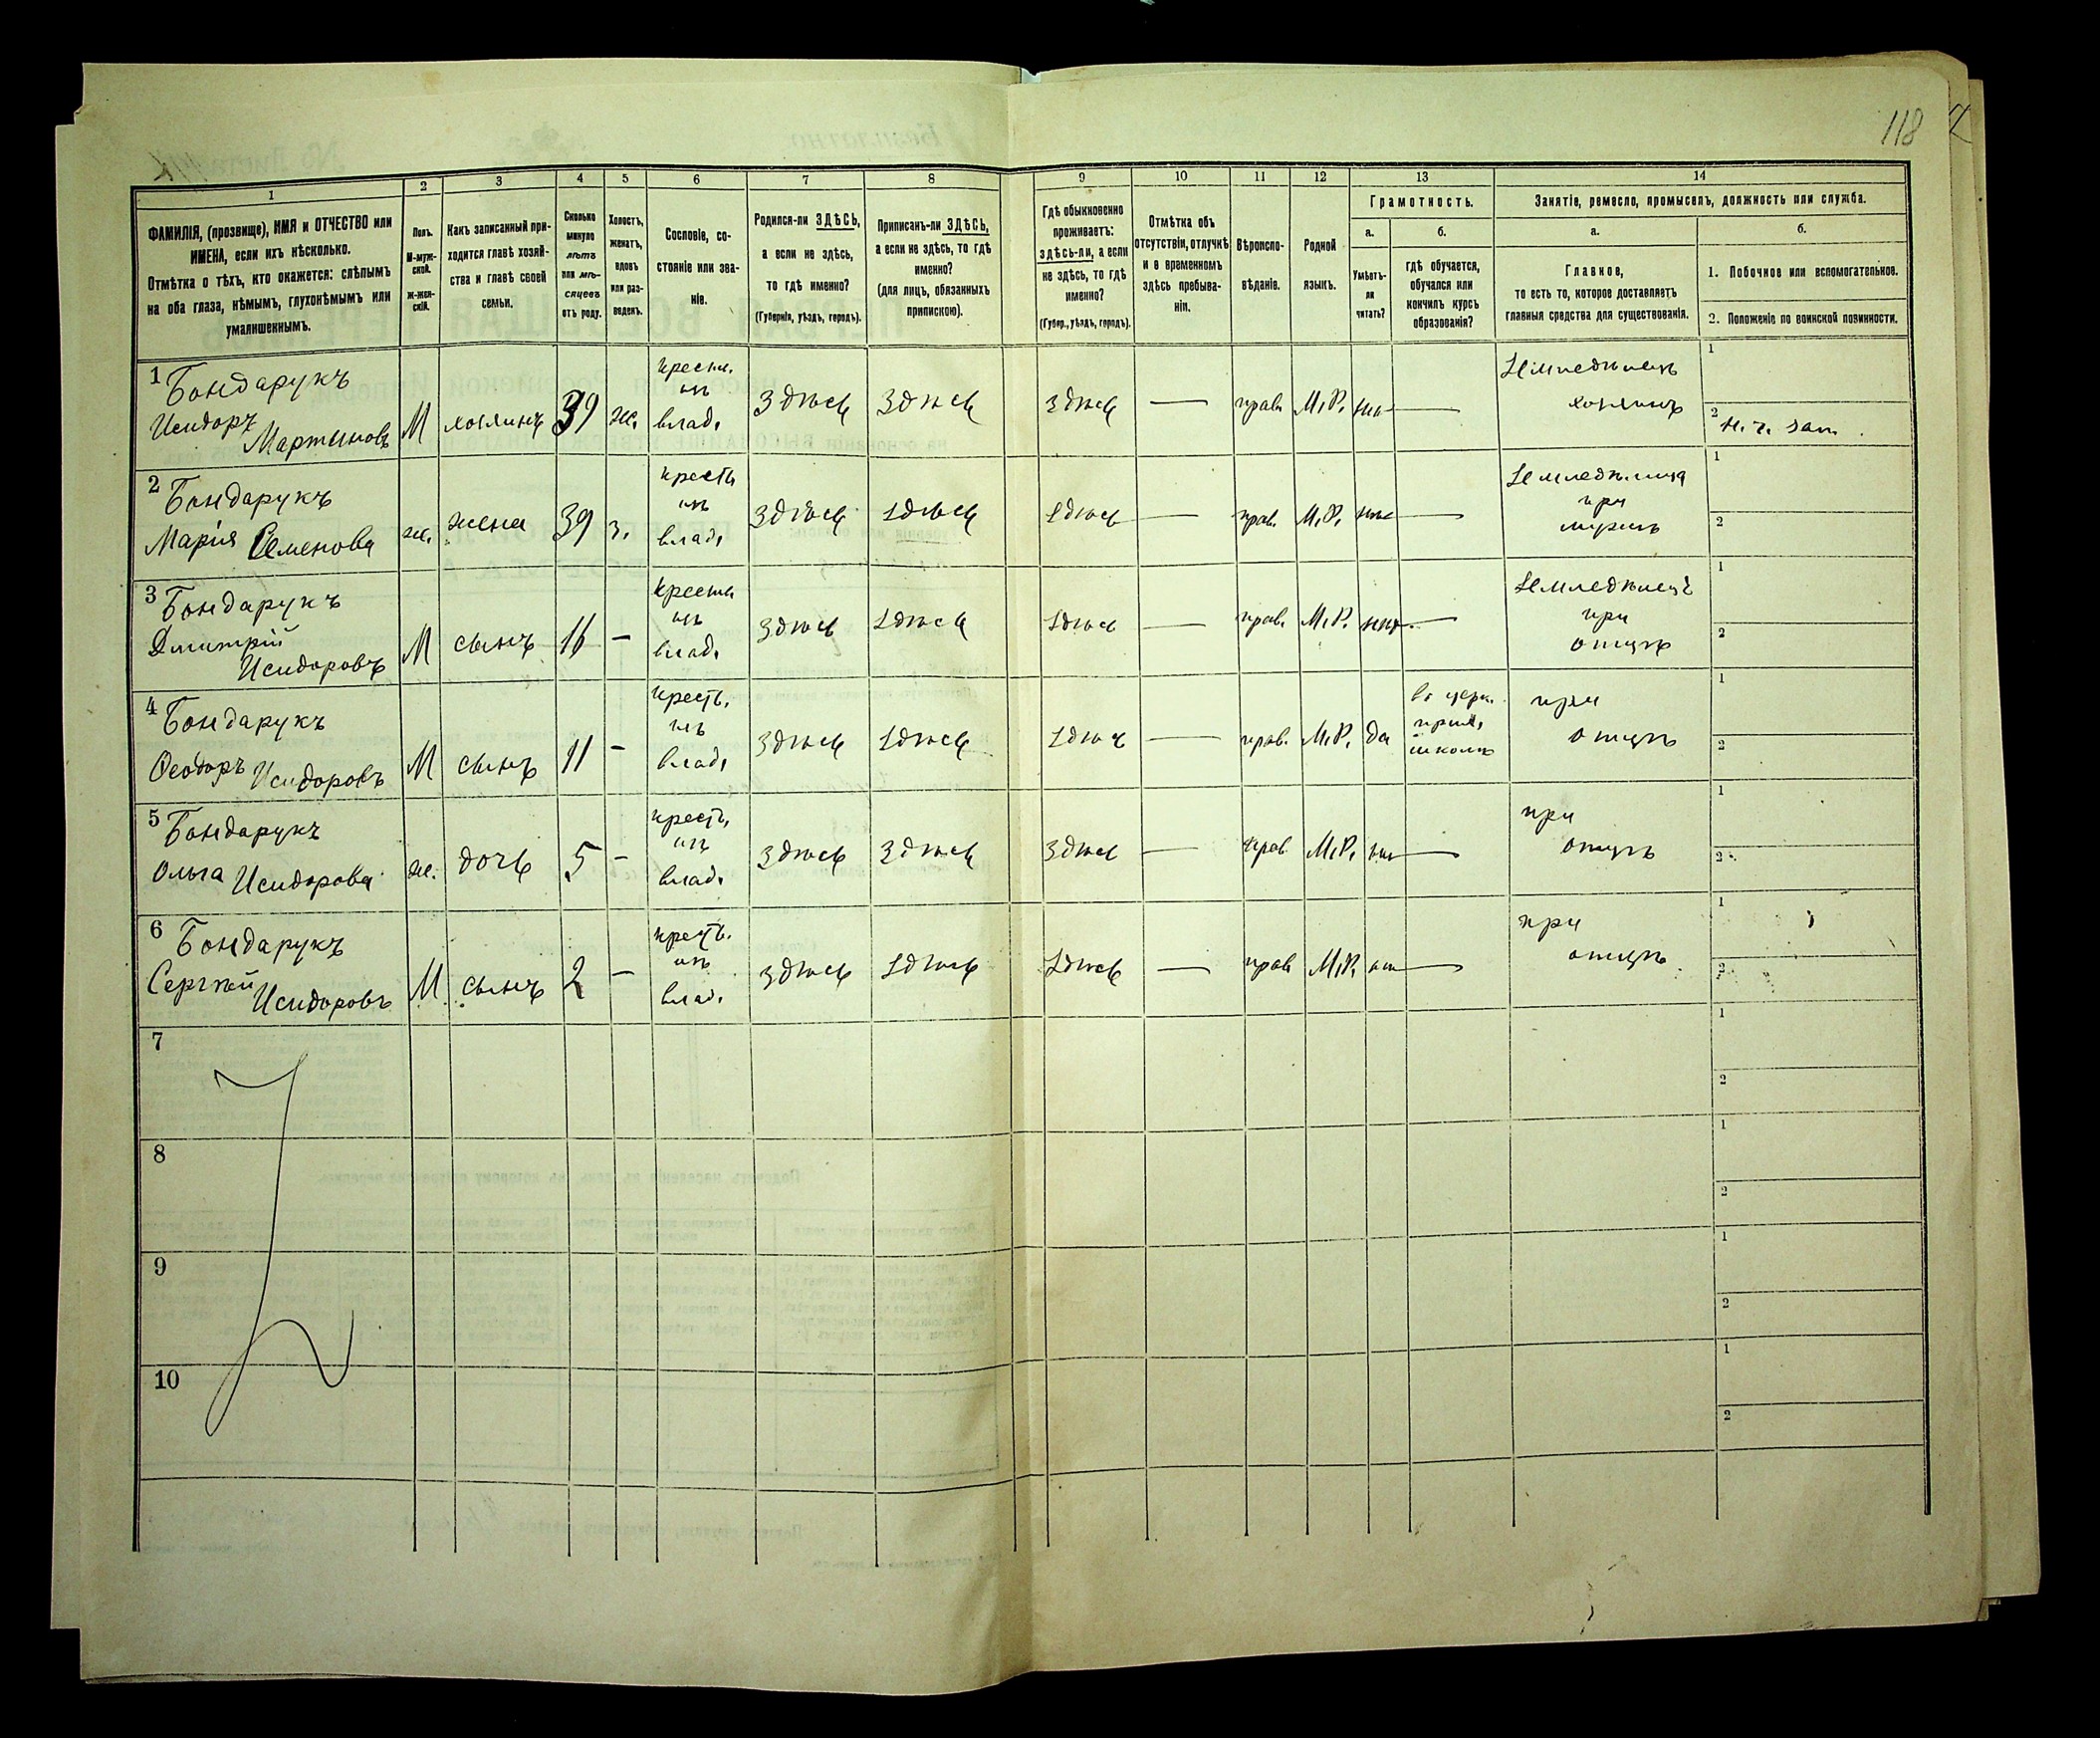 118
1
2
3
4
5
6
7
8
9
10
11
12
13
14
ФАМИЛІЯ, (прозвище), ИМЯ и ОТЧЕСТВО или
ИМЕНА, если ихъ нѣсколько.
Отмѣтка о тѣхъ, кто окажется: слѣпымъ
на оба глаза, нѣмымъ, глухонѣмымъ или
умалишеннымъ.
Полъ.
М-муж-
ской.
Ж-жен-
скій.
Какъ записанный при-
ходится главѣ хозяй-
ства и главѣ своей
семьи.
Сколько
минуло
лѣтъ
или мѣ-
сяцевъ
отъ роду.
Холостъ,
женатъ,
вдовъ
или раз-
веденъ.
Сословіе, со-
стояніе или зва-
ніе.
Родился-ли ЗДѢСЬ,
а если не здѣсь,
то гдѣ именно?
(Губернія, уѣздъ, городъ).
Приписанъ-ли ЗДѢСЬ,
а если не здѣсь, то гдѣ
именно?
(для лицъ, обязанныхъ
припискою).
Гдѣ обыкновенно
проживаетъ:
здѣсь-ли, а если
не здѣсь, то гдѣ
именно?
(Губер., уѣздъ, городъ).
Отмѣтка объ
отсутствіи, отлучкѣ
и о временномъ
здѣсь пребыва-
ніи.
Вѣроиспо-
вѣданіе.
Родной
языкъ.
Грамотность.
а.
Умѣетъ-
ли
читать?
б.
гдѣ обучается,
обучался или
кончилъ курсъ
образованія?
Занятіе, ремесло, промыселъ, должность или служба.
а.
Главное,
то есть то, которое доставляетъ
главныя средства для существованія.
б.
1. Побочное или вспомогательное.
2. Положеніе по воинской повинности.
1 Бондарукъ
Исидоръ
Мартыновъ
М
хозяинъ
39
ж.
крестн.
изъ
влад.
Здѣсь
Здѣсь
Здѣсь
—
прав.
М.Р.
нѣт
—
Земледѣлецъ
хозяинъ
1
2 н. ч. зап.
2 Бондарукъ
Марія Семенова
ж.
жена
39
з.
кресть
изъ
влад.
Здѣсь
Здѣсь
Здѣсь
—
прав.
М.Р.
нѣт
—
при
мужѣ
1
2
3 Бондарукъ
Дмитрій
Исидоровъ
М
сынъ
16
–
изъ
влад.
Здѣсь
Здѣсь
Здѣсь
—
прав.
М.Р.
нѣт
—
Земледѣлецъ
при
отцѣ
1
2
4 Бондарукъ
Ѳеодоръ Исидоровъ
М
сынъ
11
–
кресть.
изъ
влад.
Здѣсь
Здѣсь
Здѣсь
—
прав.
М.Р.
да
въ церк.
прих.
школѣ
при
отцѣ
1
2
5 Бондарукъ
Ольга Исидорова
ж.
дочь
5
–
кресть.
изъ
влад.
Здѣсь
Здѣсь
Здѣсь
—
прав
М.Р.
нѣт
—
при
отцѣ
1
2
6 Бондарукъ
Сергѣй
Исидоровъ
М
сынъ
2
–
кресть.
изъ
влад.
Здѣсь
Здѣсь
Здѣсь
—
прав
М.Р.
нѣт
—
при
отцѣ
1
2
7
1
2
8
1
2
9
1
2
10
1
2